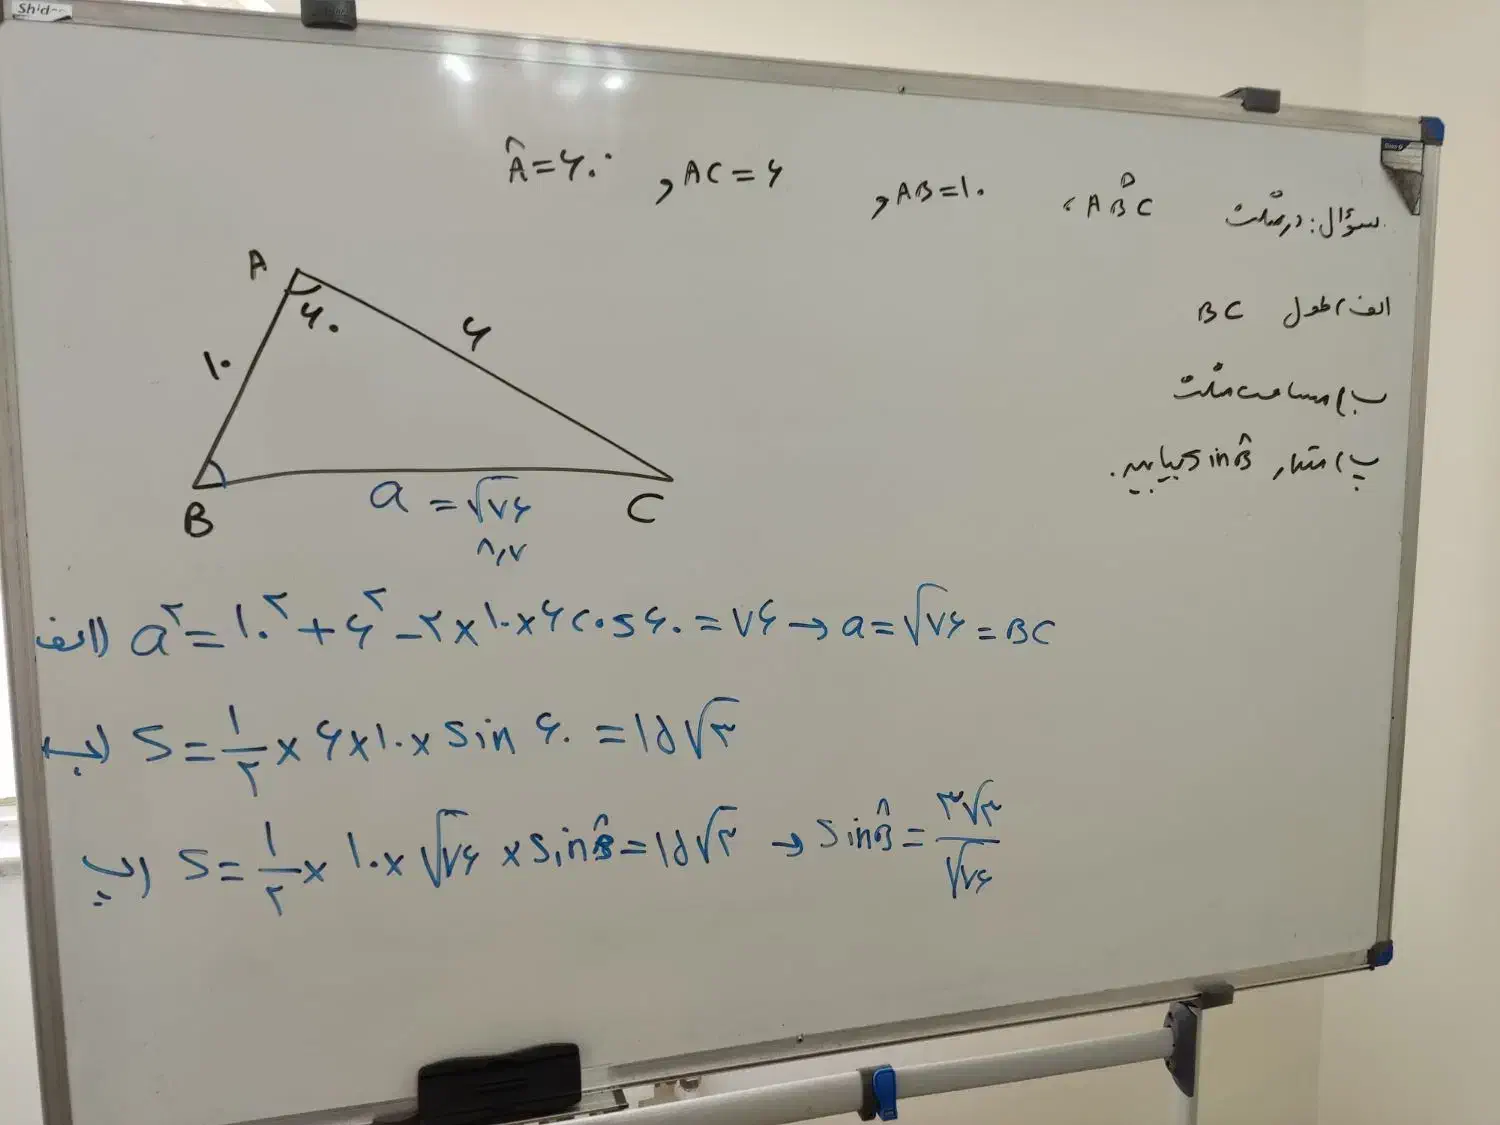 سؤال: در مثلث ABC، AB=۱۰، AC=۶، Â=۶۰°
الف) طول BC
ب) مساحت مثلث
پ) مقدار sin B̂ بیابید.
A
۶۰
۱۰
۶
B
a = √۷۶
C
۸,۷
الف) a² = ۱۰² + ۶² − ۲×۱۰×۶ cos ۶۰ = ۷۶ → a = √۷۶ = BC
ب) S = ۱/۲ × ۶×۱۰× sin ۶۰ = ۱۵√۳
پ) S = ۱/۲ × ۱۰× √۷۶ × sin B̂ = ۱۵√۳ → sin B̂ = ۳√۳/√۷۶